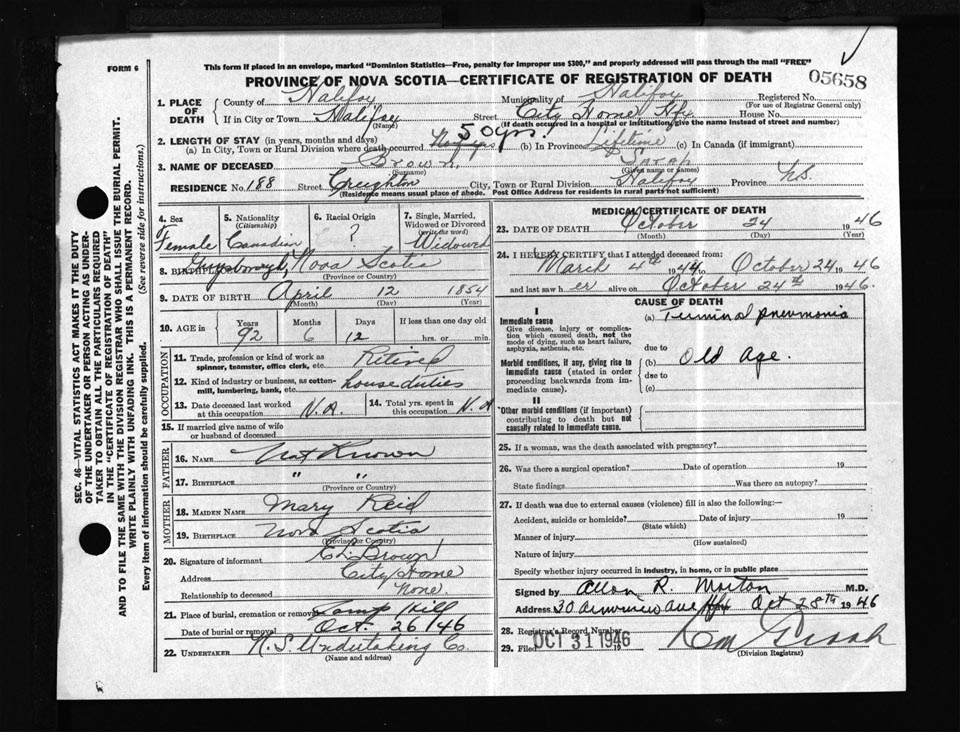 FORM 6
This form if placed in an envelope, marked "Dominion Statistics—Free, penalty for improper use $300," and properly addressed will pass through the mail "FREE"
PROVINCE OF NOVA SCOTIA—CERTIFICATE OF REGISTRATION OF DEATH
05658
1. PLACE OF DEATH
County of Halifax Municipality of Halifax Registered No.
(For use of Registrar General only)
If in City or Town Halifax Street City Home, Hfx House No.
(Name) (If death occurred in a hospital or institution, give the name instead of street and number)
2. LENGTH OF STAY (in years, months and days) 50 yrs.
(a) In City, Town or Rural Division where death occurred (b) In Province Lifetime (c) In Canada (if immigrant)
3. NAME OF DECEASED Brown, Sarah
(Surname) (Given name or names)
RESIDENCE No. 188 Street Creighton City, Town or Rural Division Halifax Province N.S.
(Residence means usual place of abode. Post Office Address for residents in rural parts not sufficient)
4. Sex Female
5. Nationality (Citizenship) Canadian
6. Racial Origin ?
7. Single, Married, Widowed or Divorced (write the word) Widowed
8. BIRTHPLACE Guysborough, Nova Scotia
(Province or Country)
9. DATE OF BIRTH April 12 1854
(Month) (Day) (Year)
10. AGE in Years 92 Months 6 Days 12 If less than one day old hrs. or min.
OCCUPATION
11. Trade, profession or kind of work as spinner, teamster, office clerk, etc. Retired
12. Kind of industry or business, as cotton-mill, lumbering, bank, etc. house duties
13. Date deceased last worked at this occupation N.A.
14. Total yrs. spent in this occupation N.A
15. If married give name of wife or husband of deceased
FATHER
16. NAME Not Known
17. BIRTHPLACE " "
(Province or Country)
MOTHER
18. MAIDEN NAME Mary Reid
19. BIRTHPLACE Nova Scotia
(Province or Country)
20. Signature of informant Brown
Address City Home
Relationship to deceased None
21. Place of burial, cremation or removal Camp Hill
Date of burial or removal Oct. 26/46
22. UNDERTAKER N.S. Undertaking Co.
(Name and address)
MEDICAL CERTIFICATE OF DEATH
23. DATE OF DEATH October 24 1946
(Month) (Day) (Year)
24. I HEREBY CERTIFY that I attended deceased from:
March 4th 1944 to October 24 1946
and last saw her alive on October 24th 1946.
CAUSE OF DEATH
I
Immediate cause (a) Terminal pneumonia
Give disease, injury or complication which caused death, not the mode of dying, such as heart failure, asphyxia, asthenia, etc.
due to
Morbid conditions, if any, giving rise to immediate cause (stated in order proceeding backwards from immediate cause).
(b) Old Age.
due to
(c)
II
Other morbid conditions (if important) contributing to death but not causally related to immediate cause.
25. If a woman, was the death associated with pregnancy?
26. Was there a surgical operation? Date of operation 19
State findings Was there an autopsy?
27. If death was due to external causes (violence) fill in also the following:—
Accident, suicide or homicide? Date of injury 19
(State which)
Manner of injury
(How sustained)
Nature of injury
Specify whether injury occurred in industry, in home, or in public place
Signed by Allan R. Morton M.D.
Address Hfx Oct 28th 1946
28. Registrar's Record Number
29. Filed OCT 31 1946
(Division Registrar)
SEC. 46—VITAL STATISTICS ACT MAKES IT THE DUTY
OF THE UNDERTAKER OR PERSON ACTING AS UNDER-
TAKER TO OBTAIN ALL THE PARTICULARS REQUIRED
IN THE "CERTIFICATE OF REGISTRATION OF DEATH"
AND TO FILE THE SAME WITH THE DIVISION REGISTRAR WHO SHALL ISSUE THE BURIAL PERMIT.
WRITE PLAINLY WITH UNFADING INK. THIS IS A PERMANENT RECORD.
Every item of information should be carefully supplied. (See reverse side for instructions.)